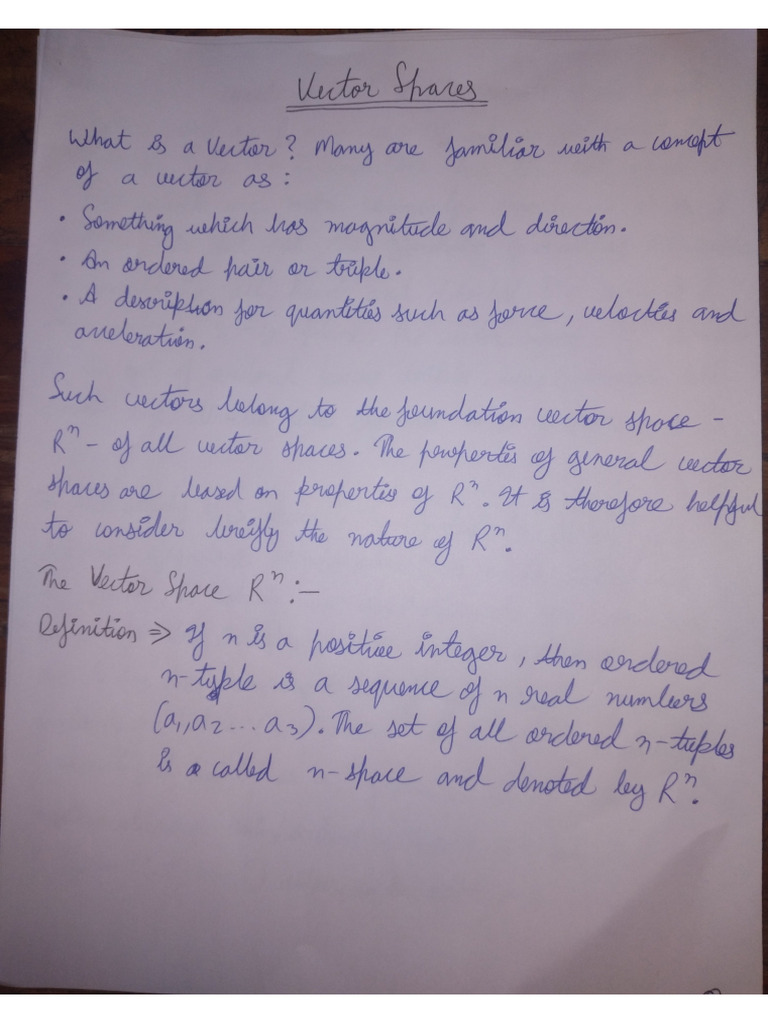 Vector Spaces
What is a Vector? Many are familiar with a concept
of a vector as:
• Something which has magnitude and direction.
• An ordered pair or triple.
• A description for quantities such as force, velocties and
acceleration.
Such vectors belong to the foundation vector space -
Rⁿ - of all vector spaces. The properties of general vector
spaces are based on properties of Rⁿ. It is therefore helpful
to consider breifly the nature of Rⁿ.
The Vector Space Rⁿ:-
Definition ⇒ If n is a positive integer, then ordered
n-tuple is a sequence of n real numbers
(a₁, a₂ ... a₃). The set of all ordered n-tuples
is a called n-space and denoted by Rⁿ.